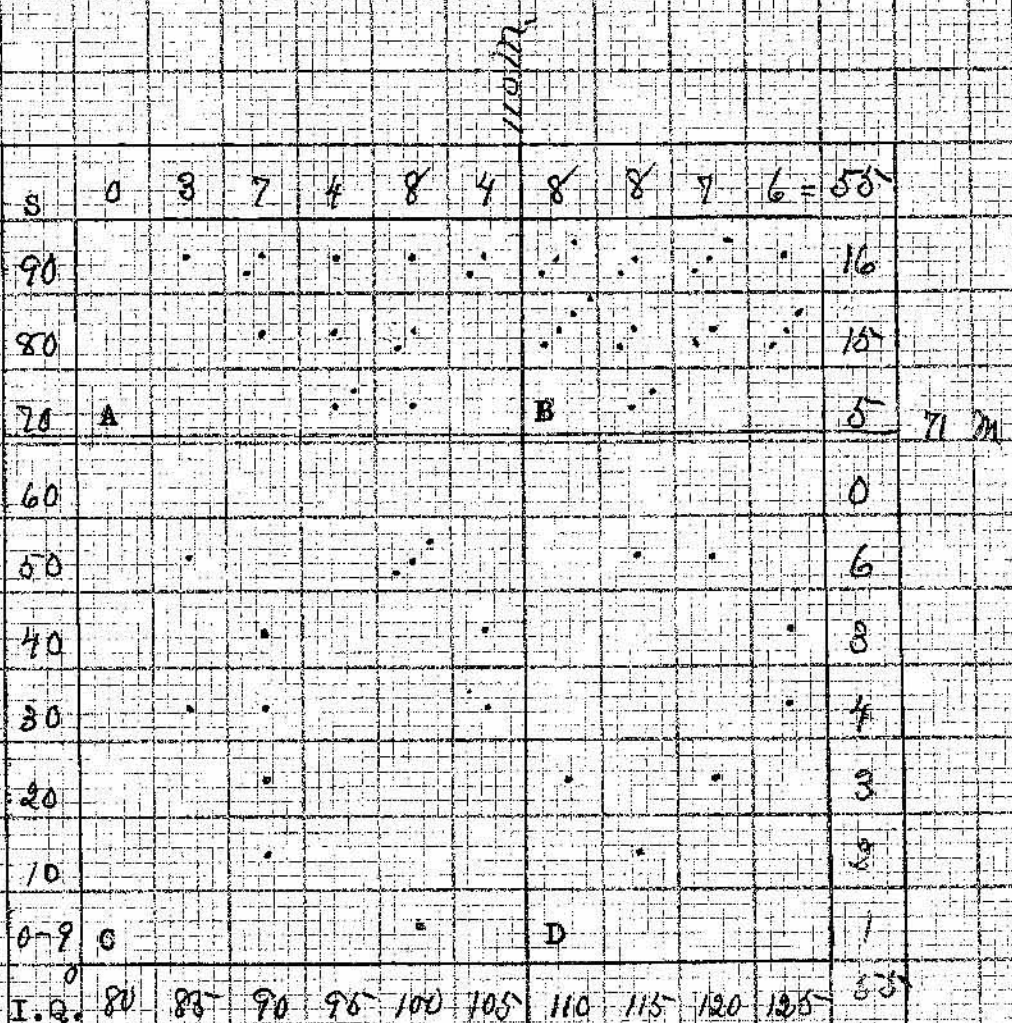 110 M.
S 0 3 7 4 8 4 8 8 7 6 = 55
90 16
80 15
70 A B 5 71 M
60 0
50 6
40 3
30 4
20 3
10 2
0-9 C D 1
0
I.Q. 80 85 90 95 100 105 110 115 120 125 55